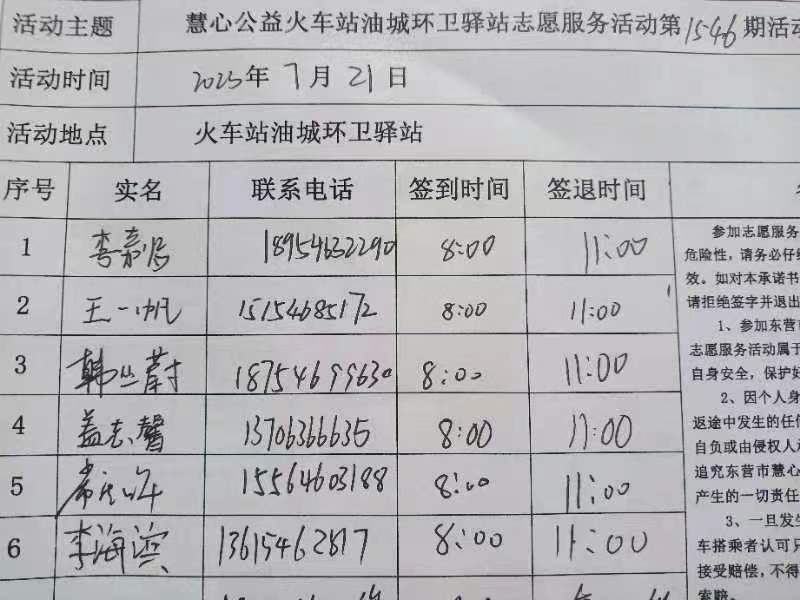 活动主题 慧心公益火车站油城环卫驿站志愿服务活动第1546期活动
活动时间 2025年7月21日
活动地点 火车站油城环卫驿站
序号 实名 联系电话 签到时间 签退时间
1 李嘉 18954632290 8:00 11:00
2 王一帆 15154685172 8:00 11:00
3 韩丛蔚 18754699630 8:00 11:00
4 盖志馨 13706366635 8:00 11:00
5 常 15564603188 8:00 11:00
6 李海滨 13615462817 8:00 11:00
参加志愿服务
危险性，请务必仔细
效。如对本承诺书
请拒绝签字并退出
1、参加东营
志愿服务活动属于
自身安全，保护好
2、因个人身
返途中发生的任何
自负或由侵权人承
追究东营市慧心
产生的一切责任
3、一旦发生
车搭乘者认可只
接受赔偿，不得
索赔。